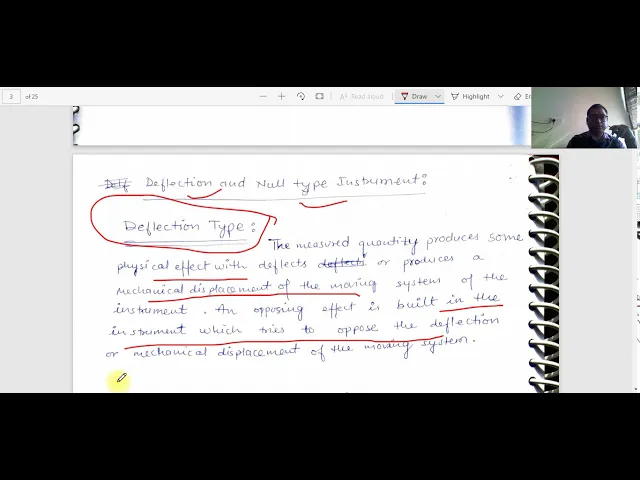 3 of 25
Read aloud
Draw
Highlight
Er
Delf Deflection and Null type Instrument:
Deflection Type:
The measured quantity produces some
physical effect with deflects deflects or produces a
mechanical displacement of the moving system of the
instrument. An opposing effect is built in the
instrument which tries to oppose the deflection
or mechanical displacement of the moving system.